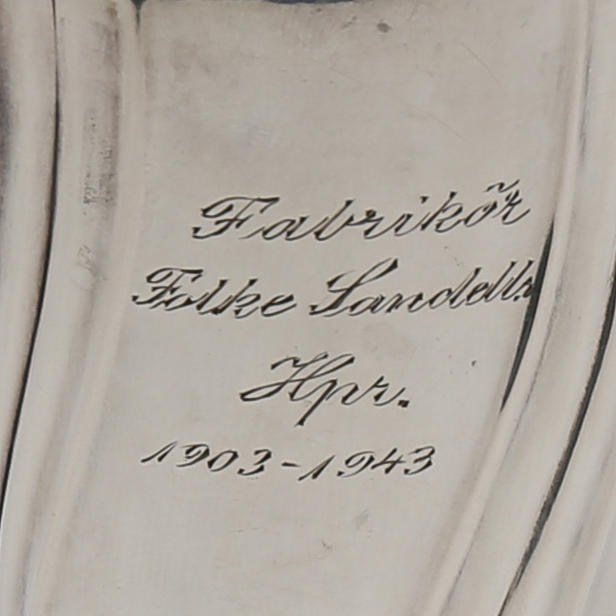 Fabrikör
Folke Sandells
Hpr.
1903-1943